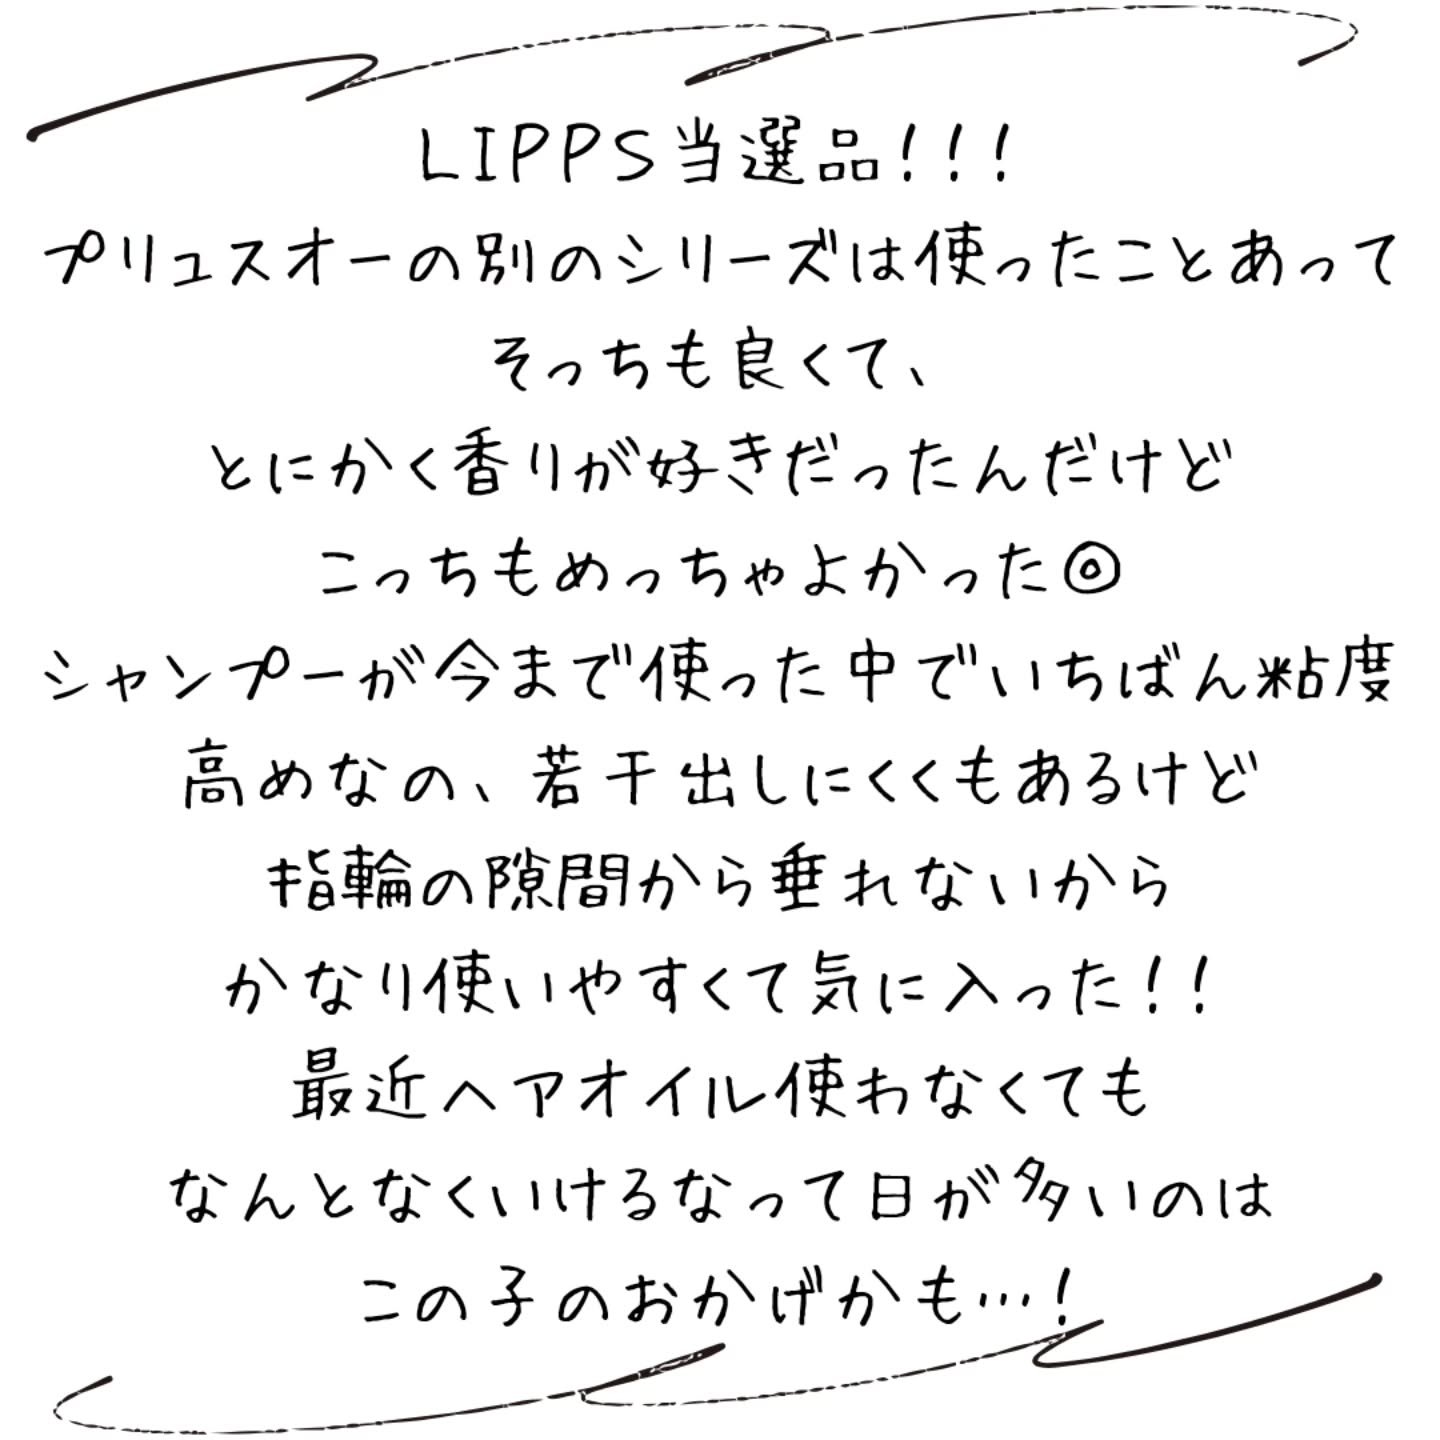 LIPPS当選品！！！
プリュスオーの別のシリーズは使ったことあって
そっちも良くて、
とにかく香りが好きだったんだけど
こっちもめっちゃよかった◎
シャンプーが今まで使った中でいちばん粘度
高めなの、若干出しにくくもあるけど
指輪の隙間から垂れないから
かなり使いやすくて気に入った！！
最近ヘアオイル使わなくても
なんとなくいけるなって日が多いのは
この子のおかげかも…！